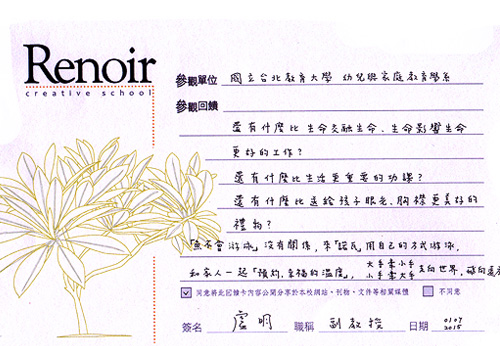 Renoir
creative school
參觀單位 國立台北教育大學 幼兒與家庭教育學系
參觀回饋
還有什麼比生命交融生命、生命影響生命
更好的工作?
還有什麼比生活更重要的功課?
還有什麼比送給孩子眼光、胸襟更美好的
禮物?
「無不會游泳」沒有關係,來「諾瓦用自己的方式游泳,
和家人一起「預約幸福的溫度」, 大手牽小手
小手牽大手 走向世界,
同意將此回饋卡內容公開分享於本校網站、刊物、文件等相關媒體 不同意
簽名 盧明 職稱 副教授 日期 0107
2015